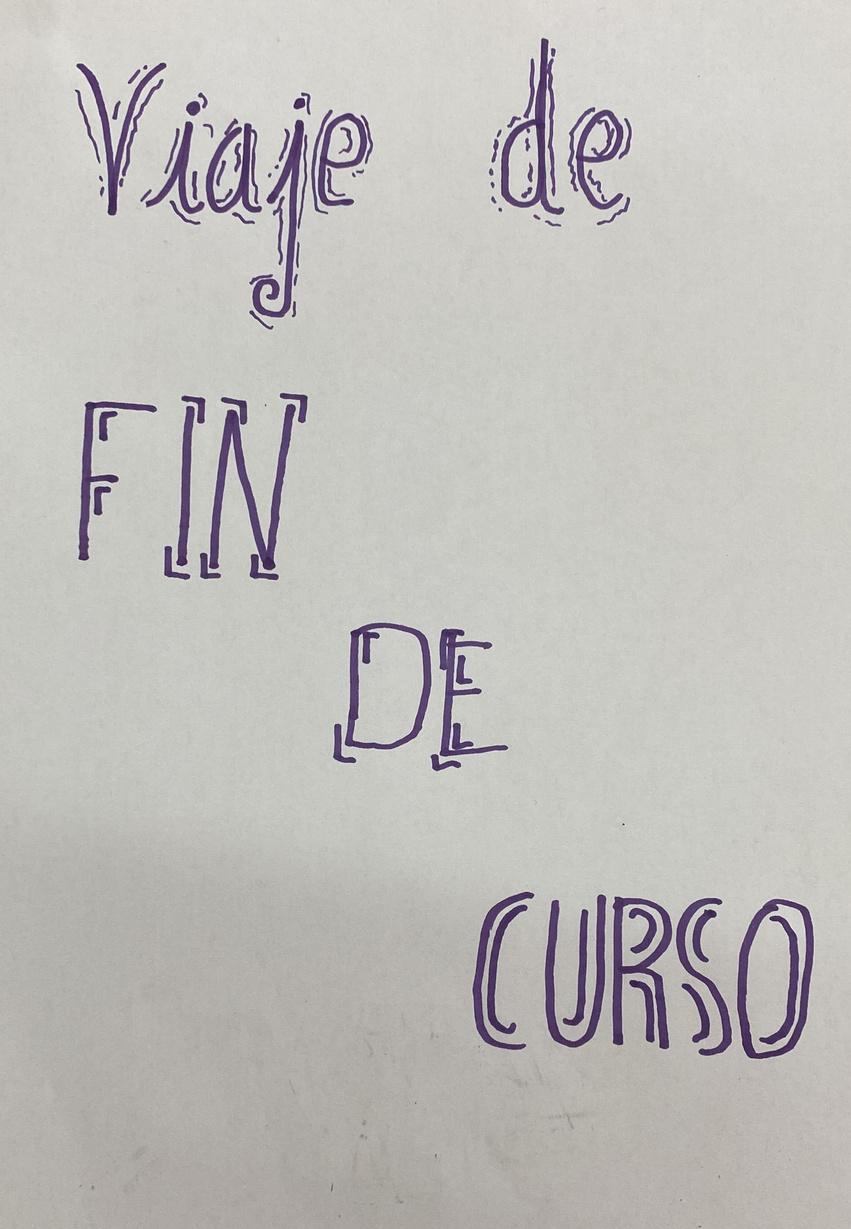 Viaje de
FIN
DE
CURSO